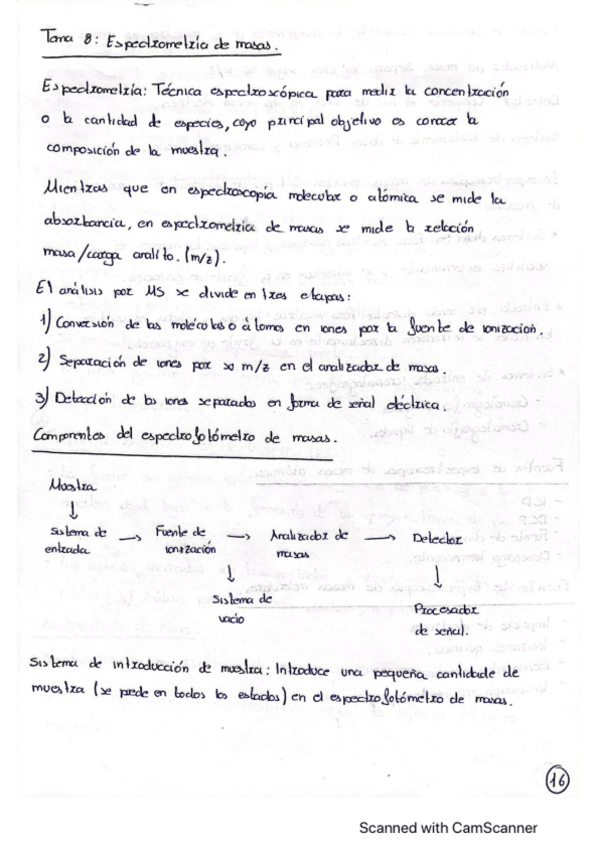 Tema 8: Espectrometría de masas.
Espectrometría: Técnica espectroscópica para medir la concentración
o la cantidad de especies, cuyo principal objetivo es conocer la
composición de la muestra.
Mientras que en espectroscopía molecular o atómica se mide la
absorbancia, en espectrometría de masas se mide la relación
masa/carga analito. (m/z).
El análisis por MS se divide en tres etapas:
1) Conversión de las moléculas o átomos en iones por la fuente de ionización.
2) Separación de iones por su m/z en el analizador de masa.
3) Detección de los iones separados en forma de señal eléctrica.
Componentes del espectrofotómetro de masas.
Muestra
↓
Sistema de entrada → Fuente de ionización → Analizador de masas → Detector
↓ ↓
Sistema de vacío Procesador de señal.
Sistema de introducción de muestra: Introduce una pequeña cantidade de
muestra (se puede en todos los estados) en el espectrofotómetro de masas.
16
Scanned with CamScanner